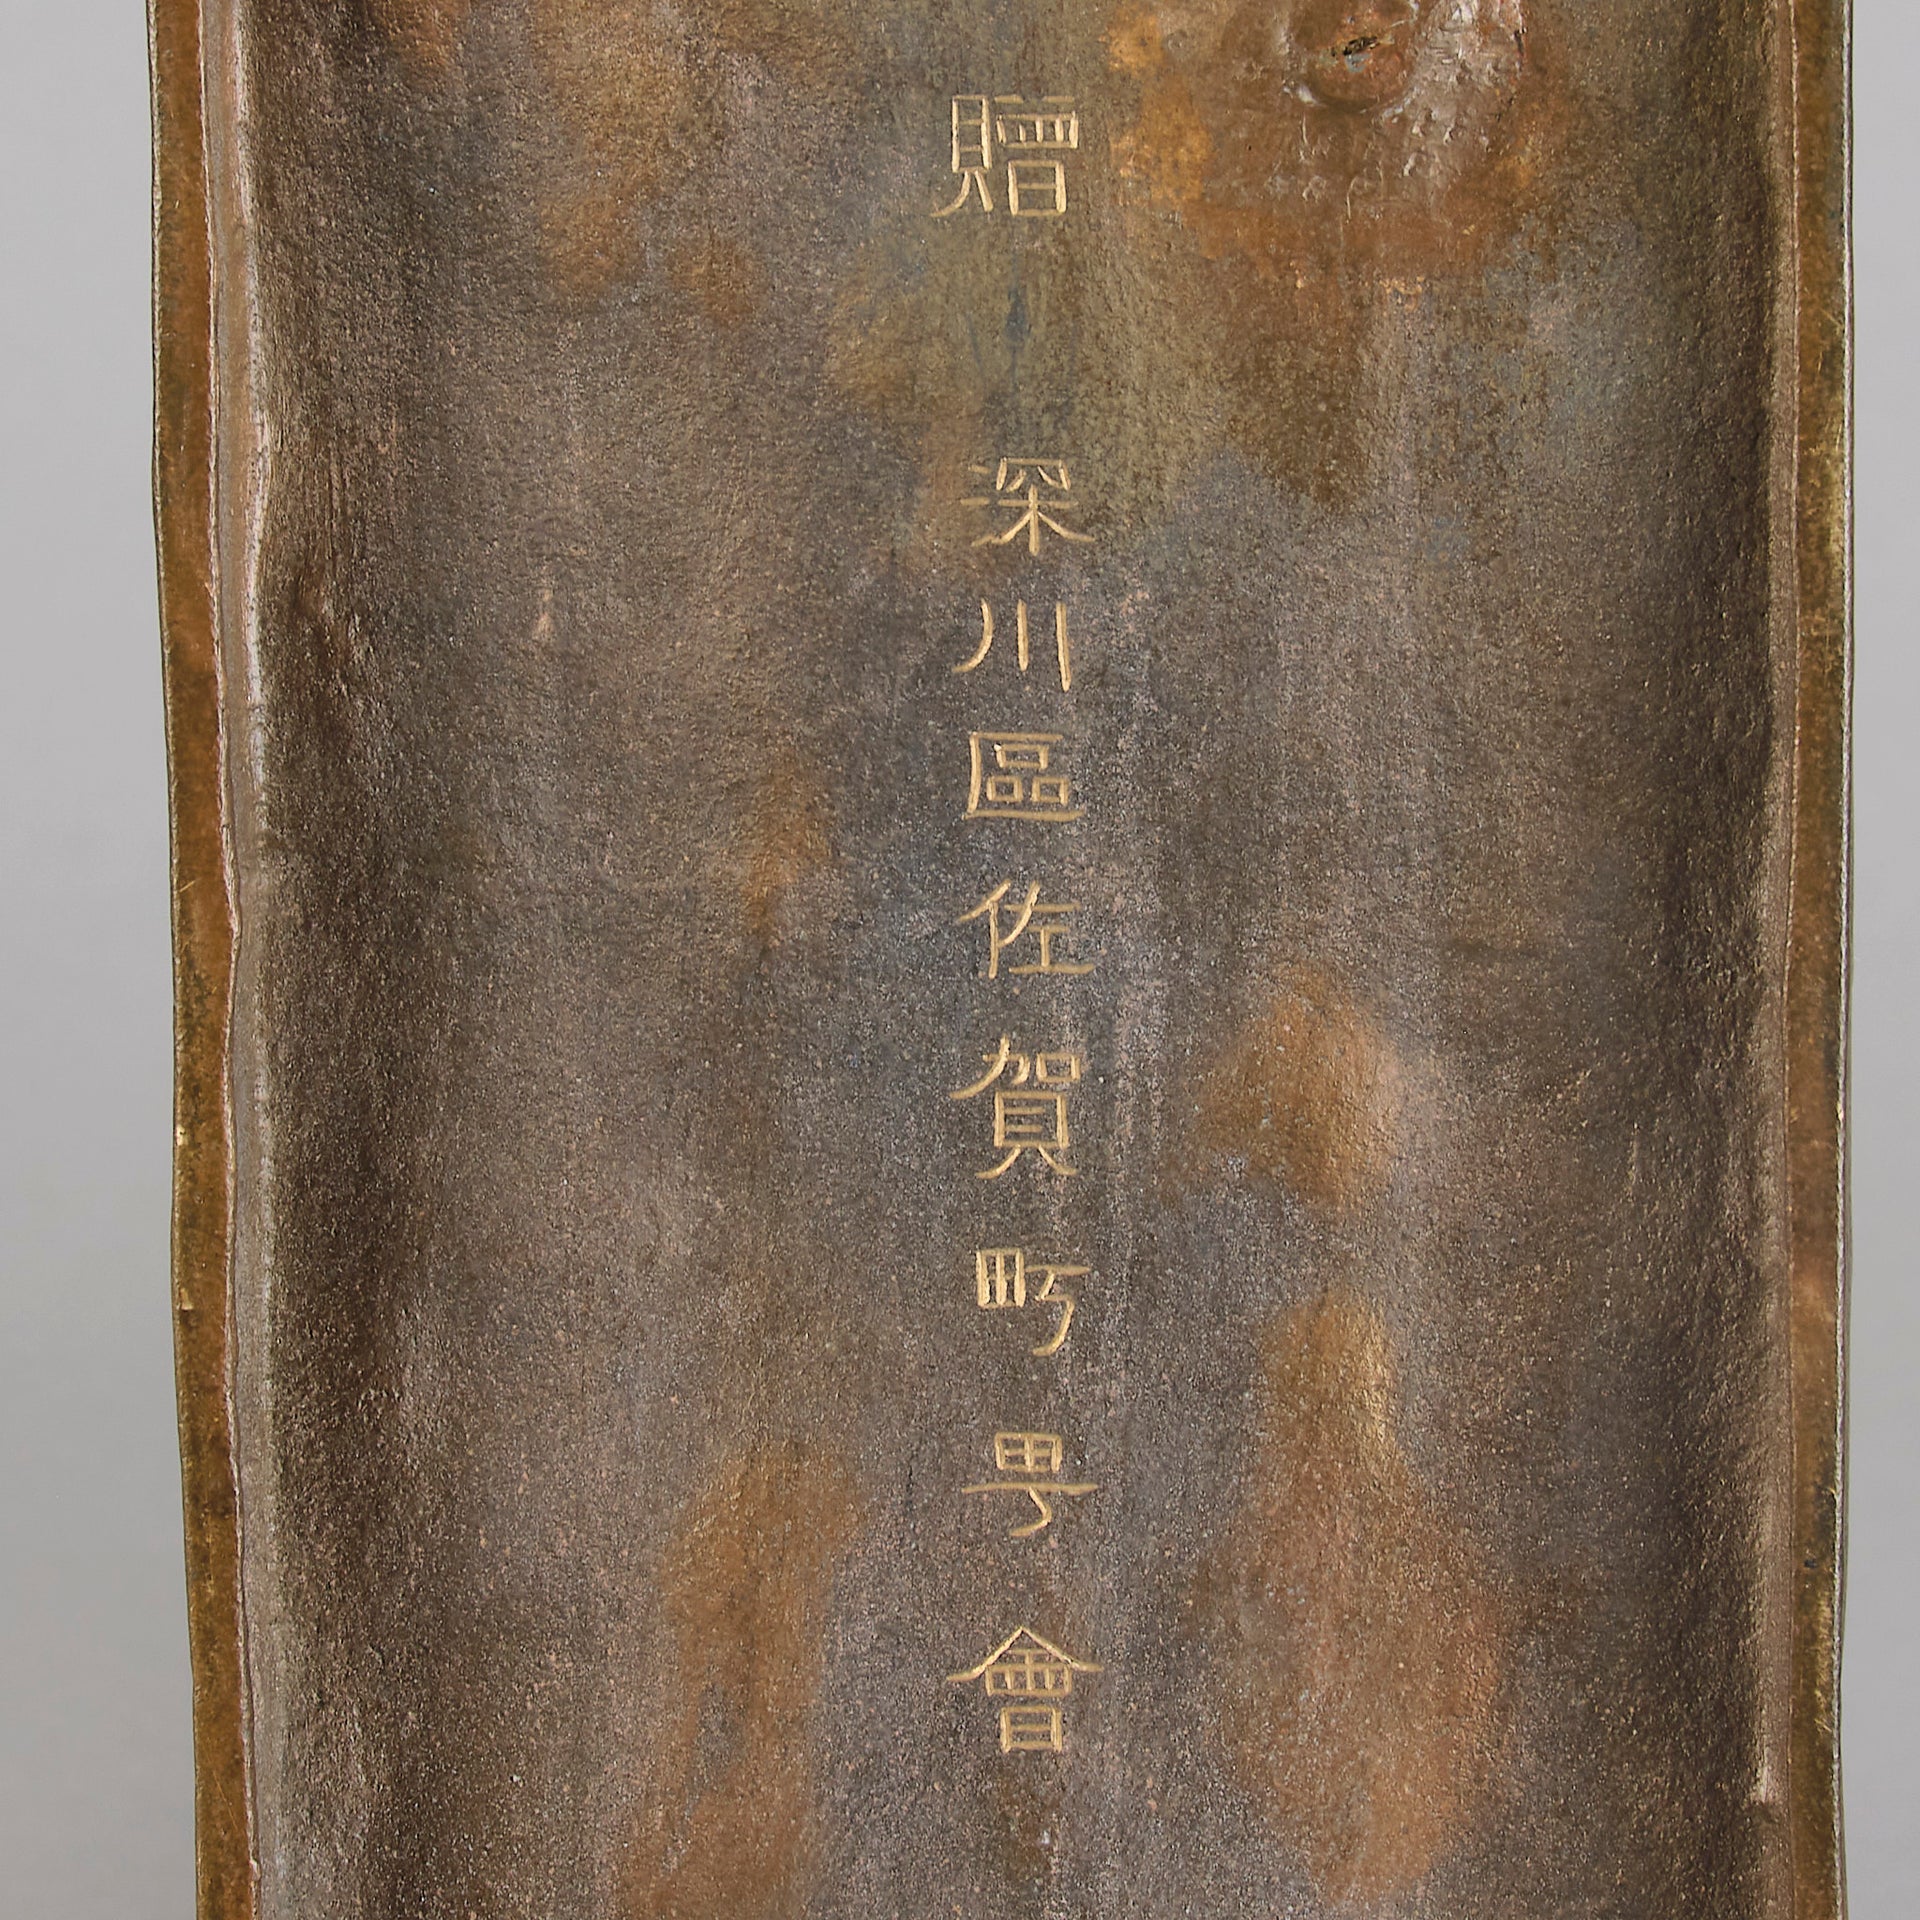 贈 深川區佐賀町甼會